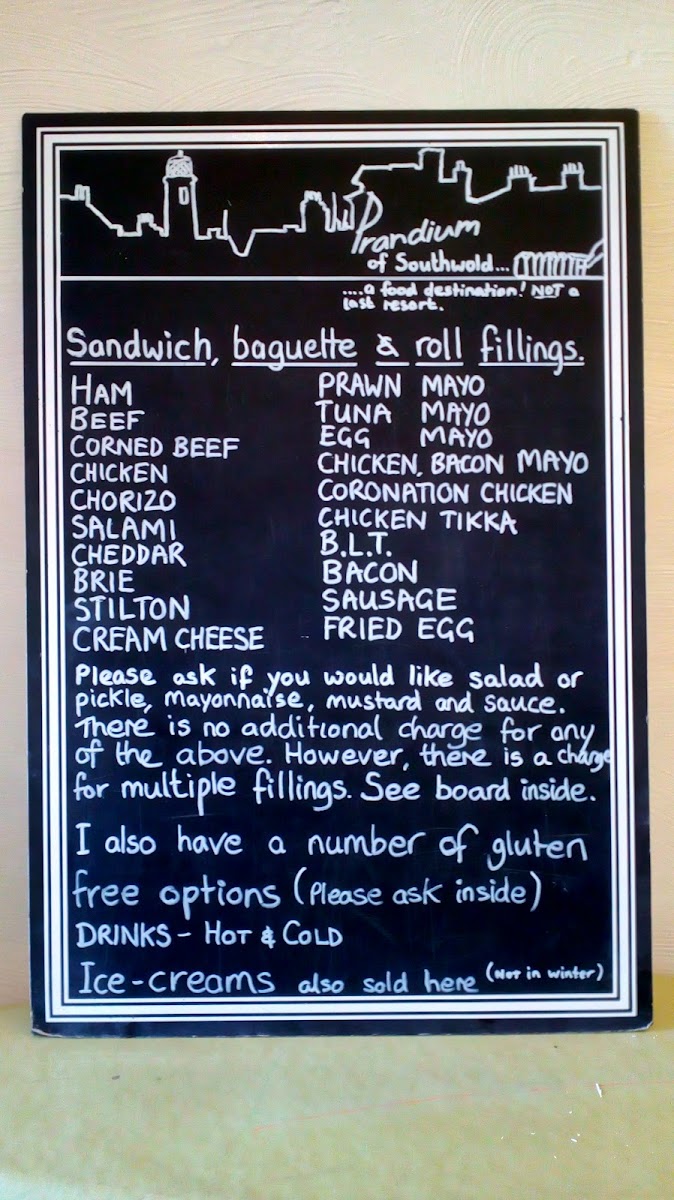 Prandium
of Southwold...
....a food destination! NOT a
last resort.
Sandwich, baguette & roll fillings.
HAM
BEEF
CORNED BEEF
CHICKEN
CHORIZO
SALAMI
CHEDDAR
BRIE
STILTON
CREAM CHEESE
PRAWN MAYO
TUNA MAYO
EGG MAYO
CHICKEN, BACON MAYO
CORONATION CHICKEN
CHICKEN TIKKA
B.L.T.
BACON
SAUSAGE
FRIED EGG
Please ask if you would like salad or
pickle, mayonnaise, mustard and sauce.
There is no additional charge for any
of the above. However, there is a charge
for multiple fillings. See board inside.
I also have a number of gluten
free options (Please ask inside)
DRINKS - HOT & COLD
Ice-creams also sold here (Not in winter)